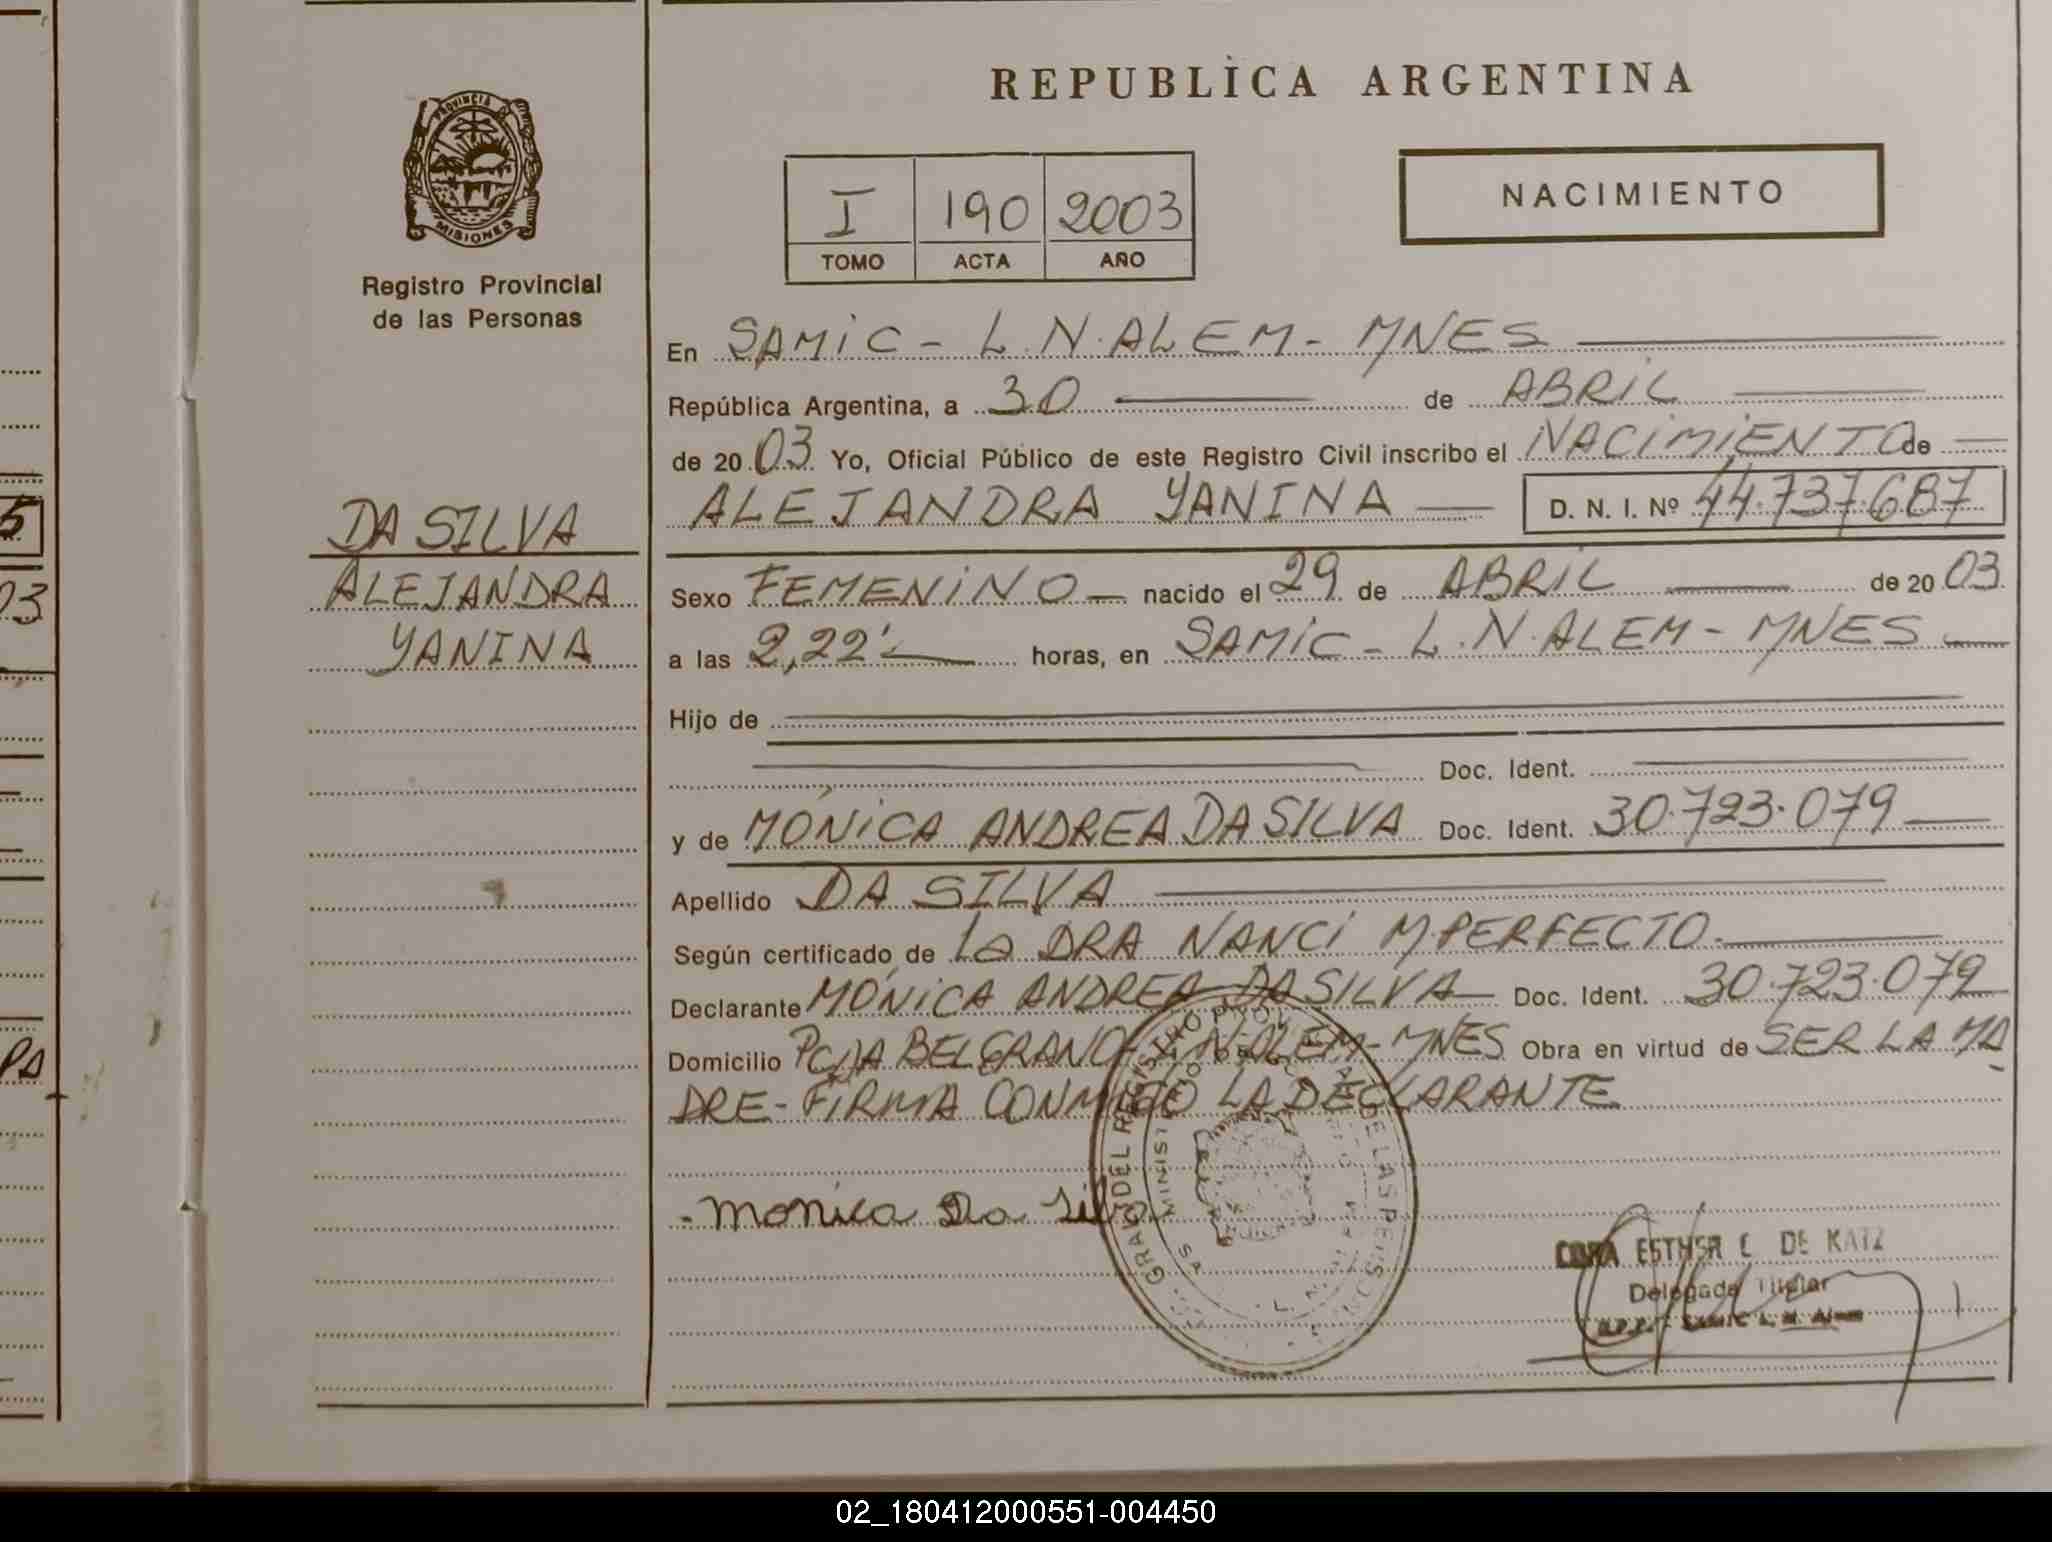 REPUBLICA ARGENTINA
PROVINCIA DE
MISIONES
Registro Provincial
de las Personas
I 190 2003
TOMO ACTA AÑO
NACIMIENTO
En SAMiC - L.N.ALEM - MNES
República Argentina, a 30 de ABRiL
de 2003 Yo, Oficial Público de este Registro Civil inscribo el NACiMiENTO de
DA SILVA
ALEJANDRA YANINA D. N. I. Nº 44.737.687
ALEJANDRA
YANINA
Sexo FEMENiNO nacido el 29 de ABRiL de 2003
a las 2,22' horas, en SAMiC - L.N.ALEM - MNES
Hijo de
Doc. Ident.
y de MÓNiCA ANDREA DA SILVA Doc. Ident. 30.723.079
Apellido DA SILVA
Según certificado de La DRA NANCi M.PERFECTO
Declarante MÓNiCA ANDREA DA SILVA Doc. Ident. 30.723.079
Domicilio PCDA BELGRANO L.N.ALEM - MNES Obra en virtud de SER LA MA
DRE - FiRMA CONMiGO LA DECLARANTE
monica Da Silva
DEL REGISTRO DE LAS PERSONAS
ESTHER C DE KATZ
Delegada Titular
SAMIC L. N. Alem
5
03
PA
02_180412000551-004450